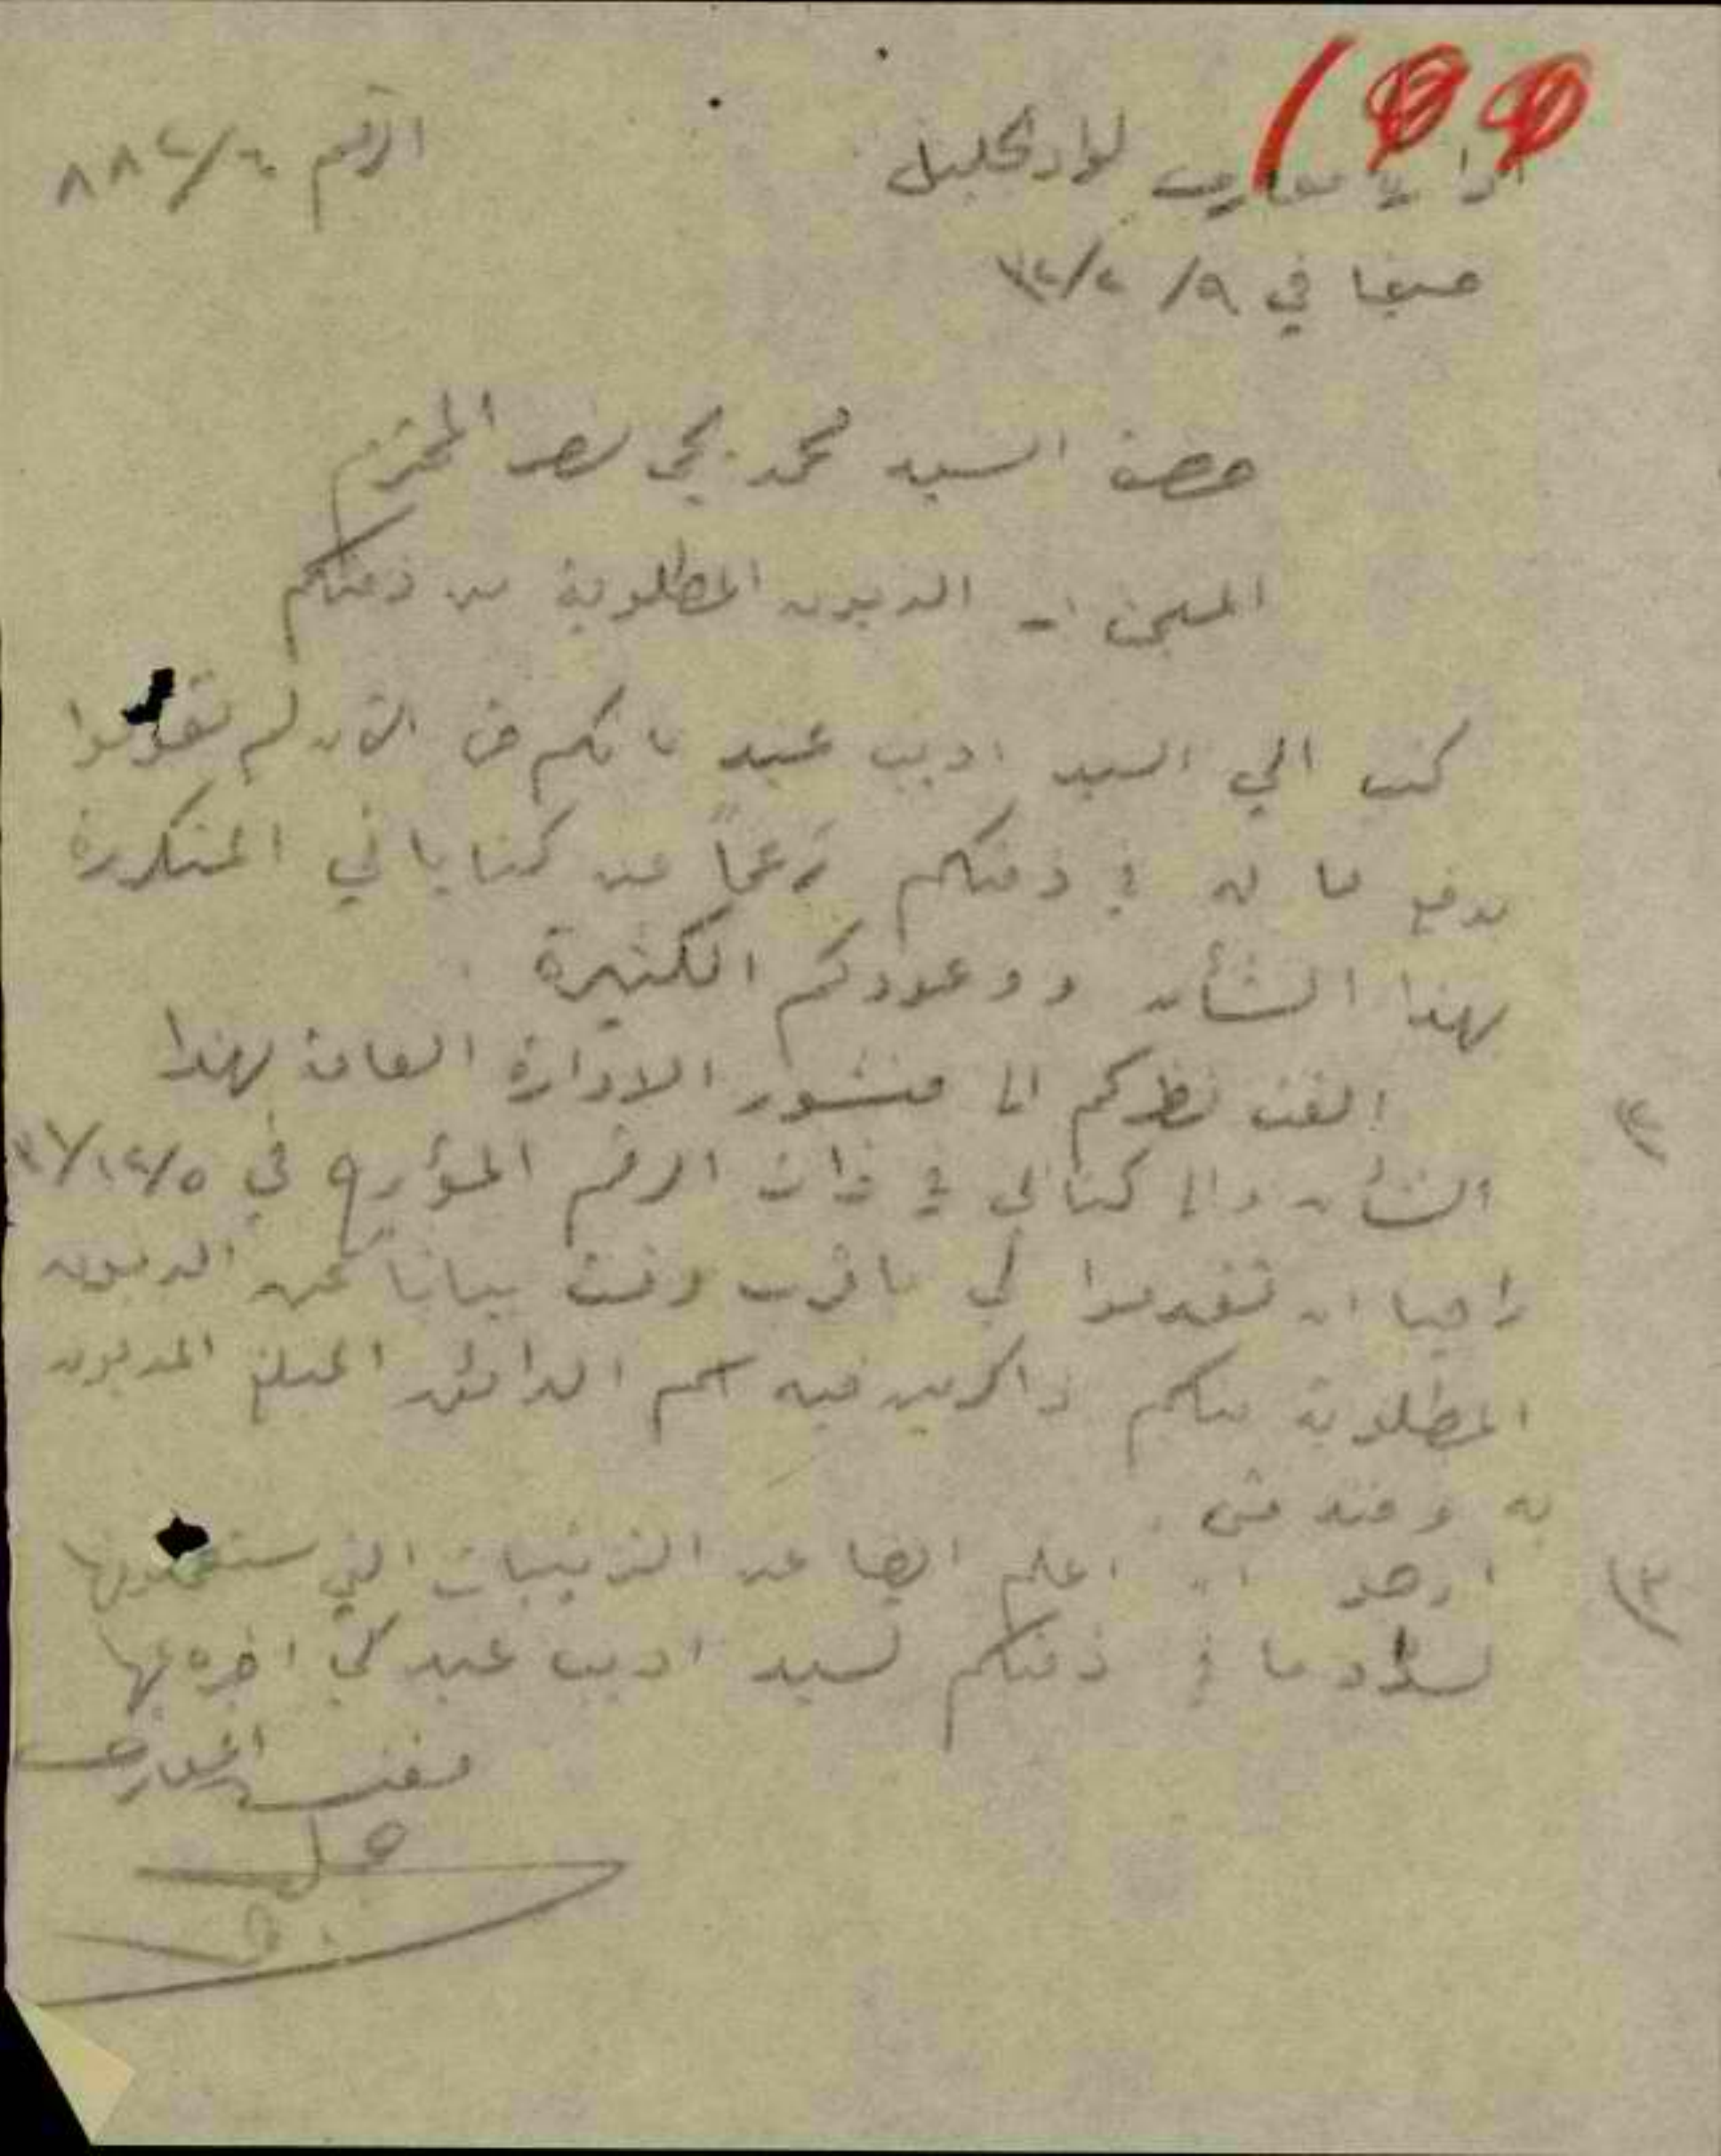 ادارة معارف لواء الجليل
الرقم ٨٨٢/٦٠
حيفا في ٩/ ٢/ ٣٢
حضرة السيد محمد يحي نصر المحترم
المبحث :- الديون المطلوبة من ذمتكم
كتب الي السيد اديب عبيد بانكم حتى الآن لم تقوموا
بدفع ما له في ذمتكم رغماً عن كتاباتي المتكررة
بهذا الشأن ووعودكم الكثيرة .
٢) الفت نظركم الى منشور الادارة العامة بهذا
الشأن والى كتابي في ذات الرقم المؤرخ في ٥/١٢/٣١
راجيا ان تقدموا لي باقرب وقت بيانا عن الديون
المطلوبة منكم ذاكرين فيه اسم الدائن المبلغ المديون
به ومنذ متى .
٣) ارجو ان اعلم ايضا عن الترتيبات التي ستعملونها
لسداد ما في ذمتكم لسيد اديب عبيد لكي اخبره بها
مفتش المعارف